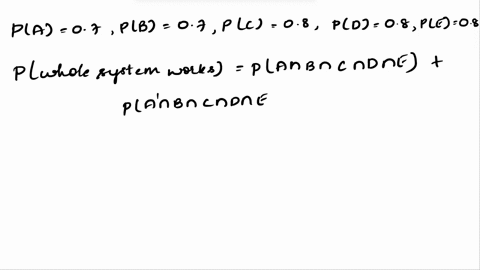 P(A) = 0.7 , P(B) = 0.7 , P(C) = 0.8 , P(D) = 0.8 , P(E) = 0.8
P(whole system works) = P(A∩B∩C∩D∩E) +
P(A'∩B∩C∩D∩E